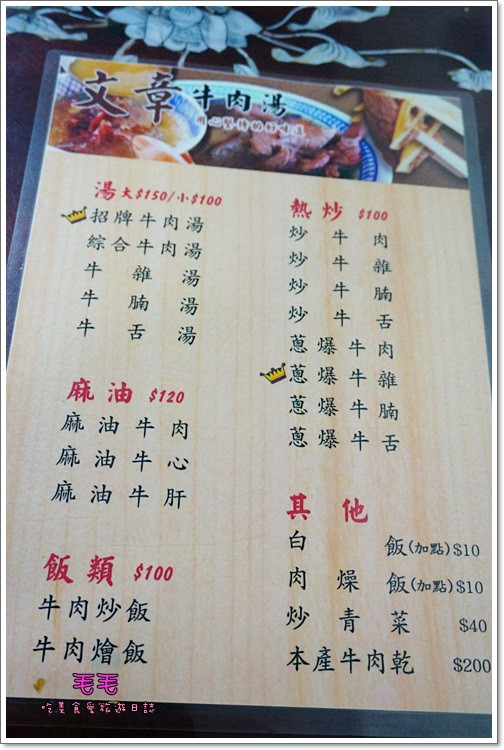 文章牛肉湯
用心堅持的好味道
湯 大$150/小$100
招牌牛肉湯
綜合牛肉湯
牛雜湯
牛腩湯
牛舌湯
麻油 $120
麻油牛肉
麻油牛心
麻油牛肝
飯類 $100
牛肉炒飯
牛肉燴飯
熱炒 $100
炒牛肉
炒牛雜
炒牛腩
炒牛舌
蔥爆牛肉
蔥爆牛雜
蔥爆牛腩
蔥爆牛舌
其他
白飯(加點)$10
肉燥飯(加點)$10
炒青菜 $40
本產牛肉乾 $200
毛毛
吃美食愛旅遊日誌